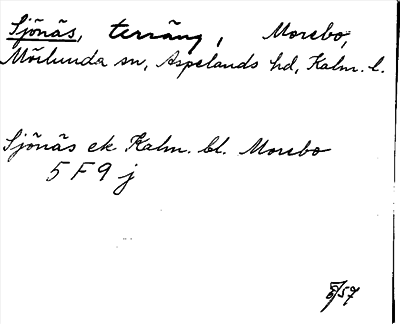 Sjönäs, terräng, Morebo,
Mörlunda sn, Aspelands hd, Kalm. l.
Sjönäs ek Kalm. bl. Morebo
5 F 9 j
6/57